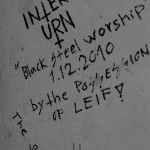 INTER
URN
"Black Steel worship
1.12.2010
by the POSSESSION
OF LEIF!